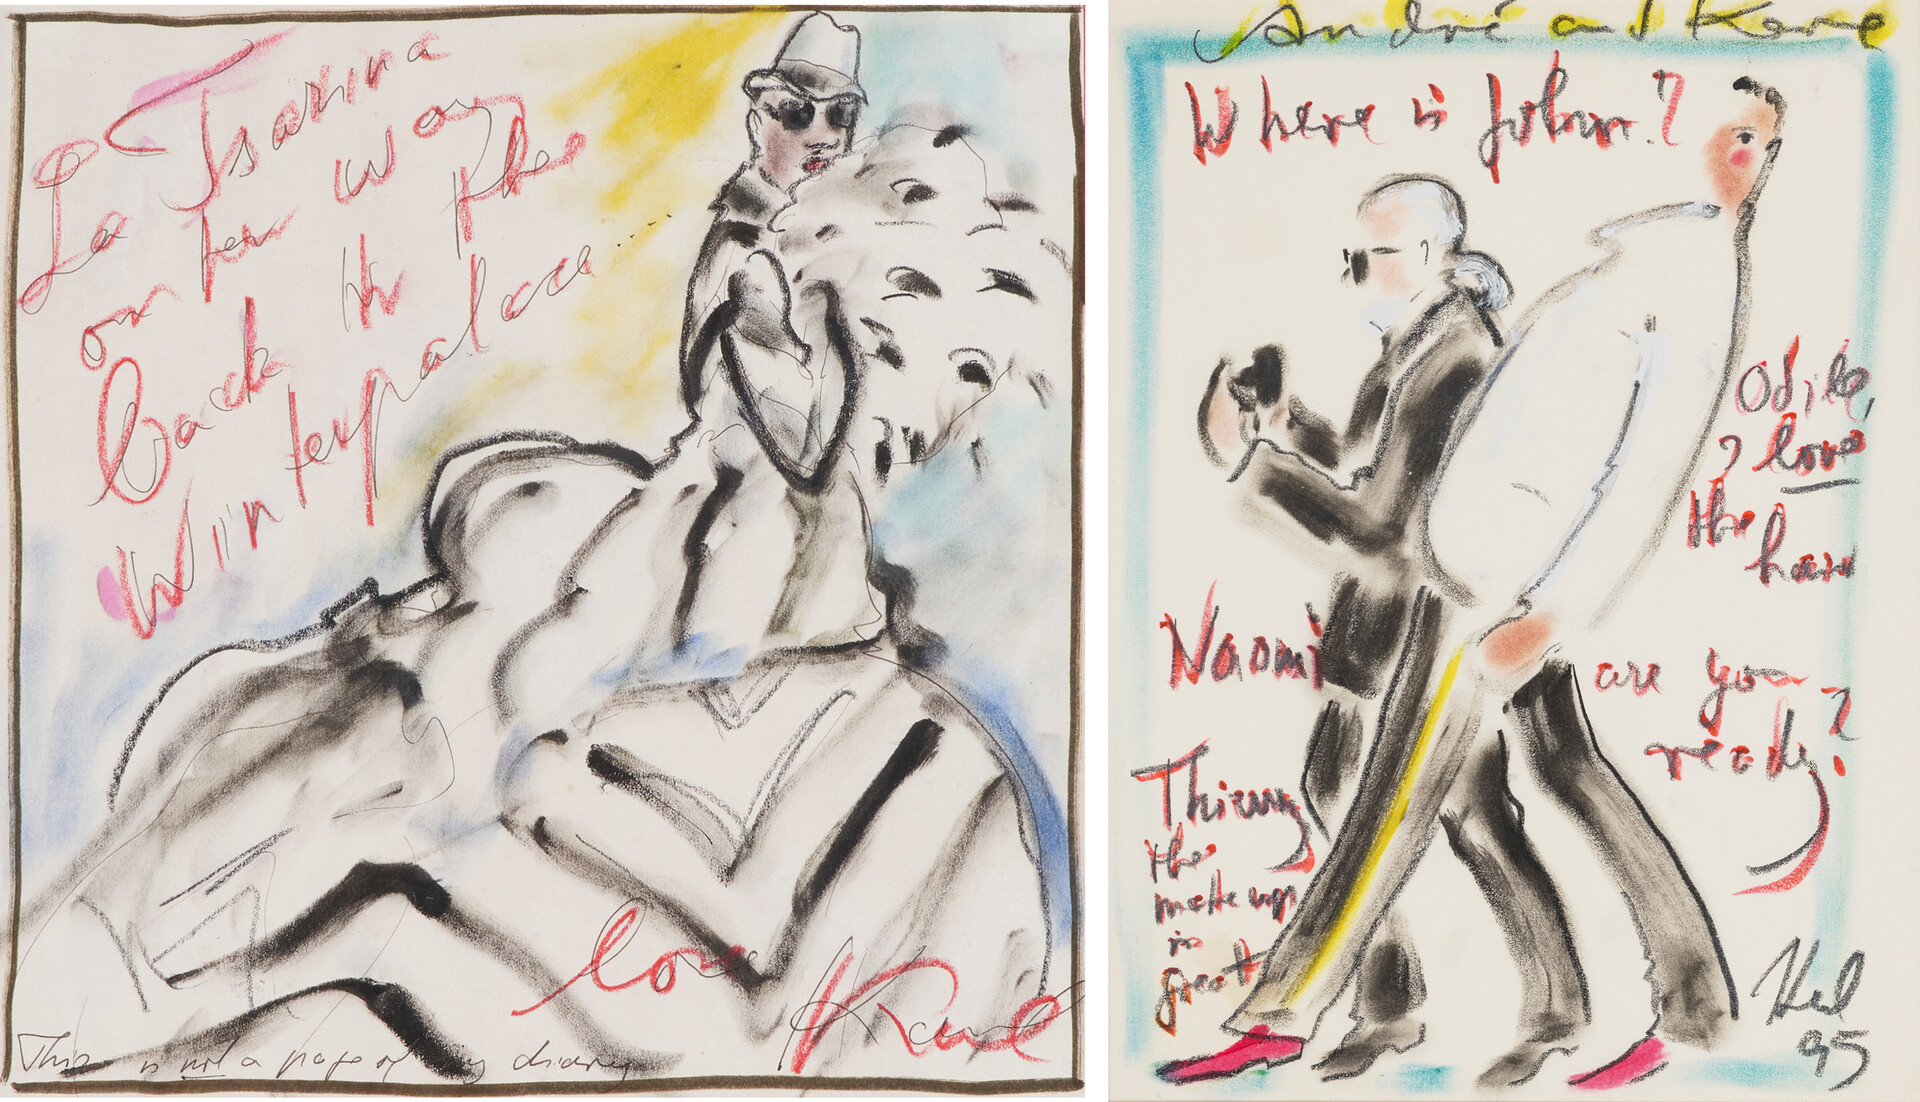 La Tsarina
on her way
back to the
Winterpalace
love
This is not a page of my diary
André and Karl
Where is John?
Odile,
I love
the hair
Naomi
are you
ready?
Thierry
the
make up
is
great
Karl
95